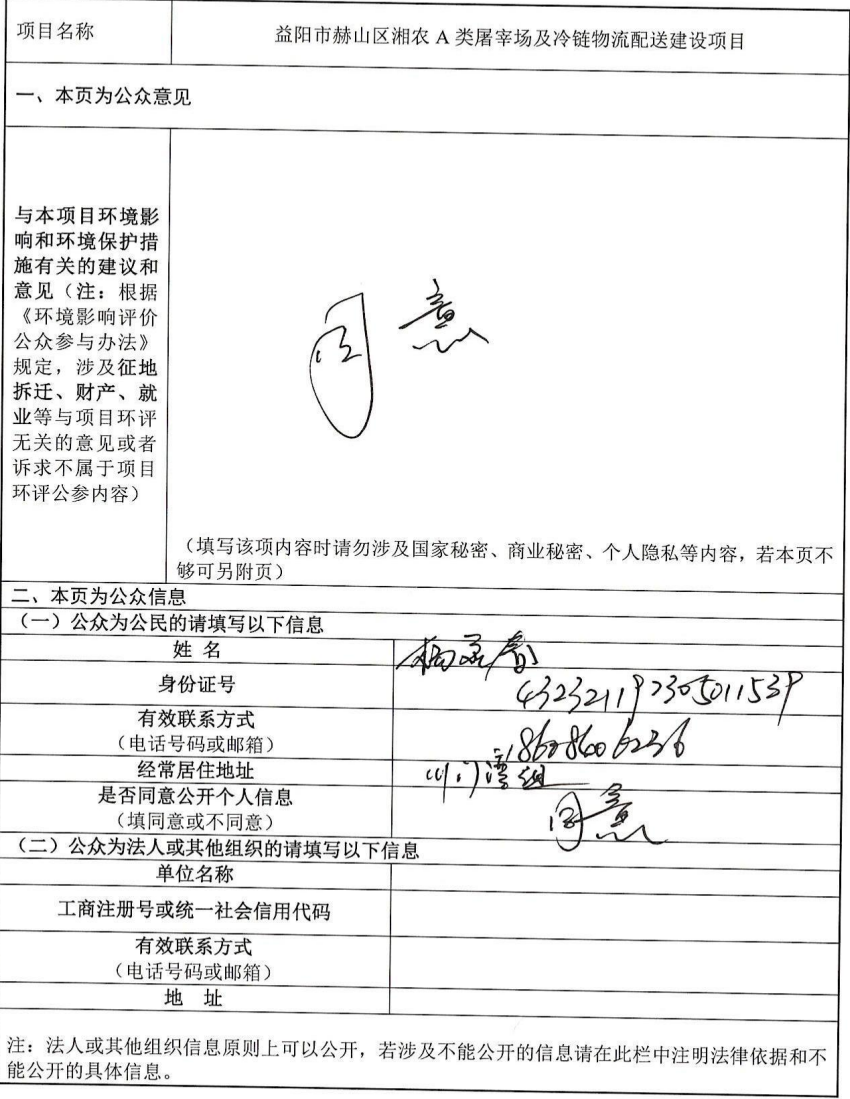 项目名称
益阳市赫山区湘农 A 类屠宰场及冷链物流配送建设项目
一、本页为公众意见
与本项目环境影
响和环境保护措
施有关的建议和
意见（注：根据
《环境影响评价
公众参与办法》
规定，涉及征地
拆迁、财产、就
业等与项目环评
无关的意见或者
诉求不属于项目
环评公参内容）
同意
（填写该项内容时请勿涉及国家秘密、商业秘密、个人隐私等内容，若本页不
够可另附页）
二、本页为公众信息
（一）公众为公民的请填写以下信息
姓 名
身份证号
有效联系方式
（电话号码或邮箱）
经常居住地址
湾组
是否同意公开个人信息
（填同意或不同意）
同意
（二）公众为法人或其他组织的请填写以下信息
单位名称
工商注册号或统一社会信用代码
有效联系方式
（电话号码或邮箱）
地 址
注：法人或其他组织信息原则上可以公开，若涉及不能公开的信息请在此栏中注明法律依据和不
能公开的具体信息。